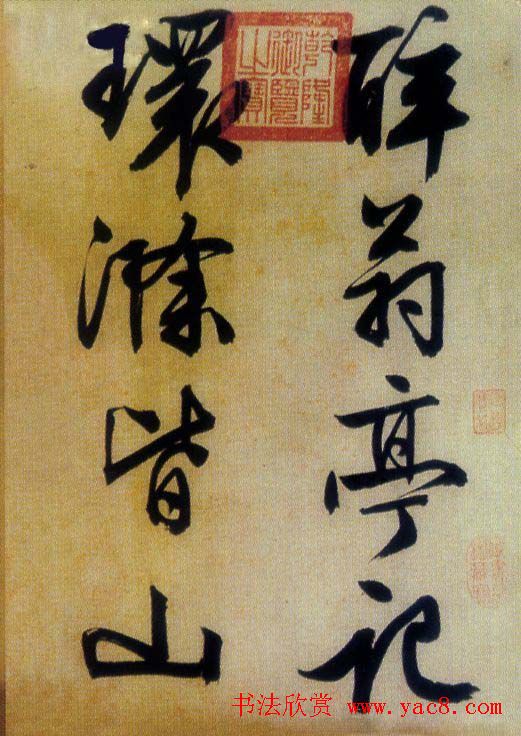 醉翁亭記
環滁皆山
乾隆御覽之寶
书法欣赏 www.yac8.com